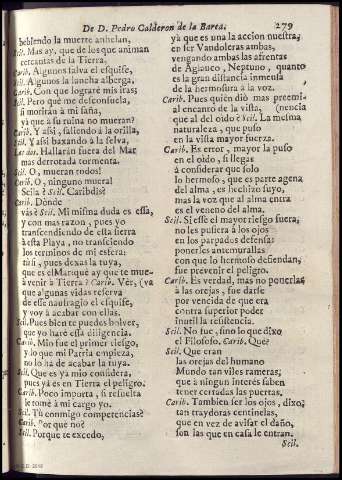 De D. Pedro Calderon de la Barca.
279
bebiendo la muerte anhelan,
Scil. Mas ay, que de los que animan
cercanias de la Tierra.
Carib. Algunos salva el esquife,
Scil. Algunos la lancha alberga,
Carib. Con que lograré mis iras;
Scil. Pero què me desconsuela,
si morirán à mi saña,
yà que à su ruìna no mueran?
Carib. Y assi, saliendo à la orilla,
Scil. Y assi, baxando à la selva,
Las dos. Hallarán fuera del Mar
mas derrotada tormenta.
Scil. O, mueran todos!
Carib. O, ninguno muera!
Scila? Scil. Caribdis?
Carib. Dònde
vàs? Scil. Mi misma duda es essa,
y con mas razon, pues yo
transcendiendo de esta sierra
à esta Playa, no transciendo
los terminos de mi esfera;
tù sì, pues dexas la tuya,
que es el Mar: què ay que te mue-
à venir à Tierra? Carib. Vèr, (va
que algunas vidas reserva
de esse naufragio el esquife,
y voy à acabar con ellas.
Scil. Pues bien te puedes bolver,
que yo haré essa diligencia.
Carib. Mio fue el primer riesgo,
y lo que mi Patria empieza,
no lo ha de acabar la tuya.
Scil. Que es ya mio considera,
pues yà es en Tierra el peligro.
Carib. Poco importa, si resuelta
le tomè à mi cargo yo.
Scil. Tù conmigo competencias?
Carib. Por què no?
Scil. Porque te excedo,
yà que es una la accion nuestra,
en ser Vandoleras ambas,
vengando ambas las afrentas
de Neptuno, quanto
es la gran distancia inmensa
de la hermosura à la voz.
Carib. Pues quièn diò mas preemi-
al encanto de la vista, (nencia
que al del oìdo? Scil. La mesma
naturaleza, que puso
en la vista mayor fuerza.
Carib. Es error, mayor la puso
en el oìdo, si llegas
à considerar que solo
lo hermoso, que es parte agena
del alma, es hechizo suyo,
mas la voz que al alma entra
es el veneno del alma.
Scil. Si esse el mayor riesgo fuera,
no les pusiera à los ojos
en los parpados defensa:
ponerles antemurallas
con que lo hermoso defiendan,
fue prevenir el peligro.
Carib. Es verdad, mas no ponerlas
à las orejas, fue darse
por vencida de que era
contra superior poder
inutil la resistencia.
Scil. No fue, sino lo que dixo
el Filosofo. Carib. Què?
Scil. Que eran
las orejas del humano
Mundo tan viles rameras,
que à ningun interès saben
tener cerradas las puertas.
Carib. Tambien ser los ojos, dixo,
tan traydoras centinelas,
que en vez de avisar el daño,
son las que en casa le entran.
Scil.